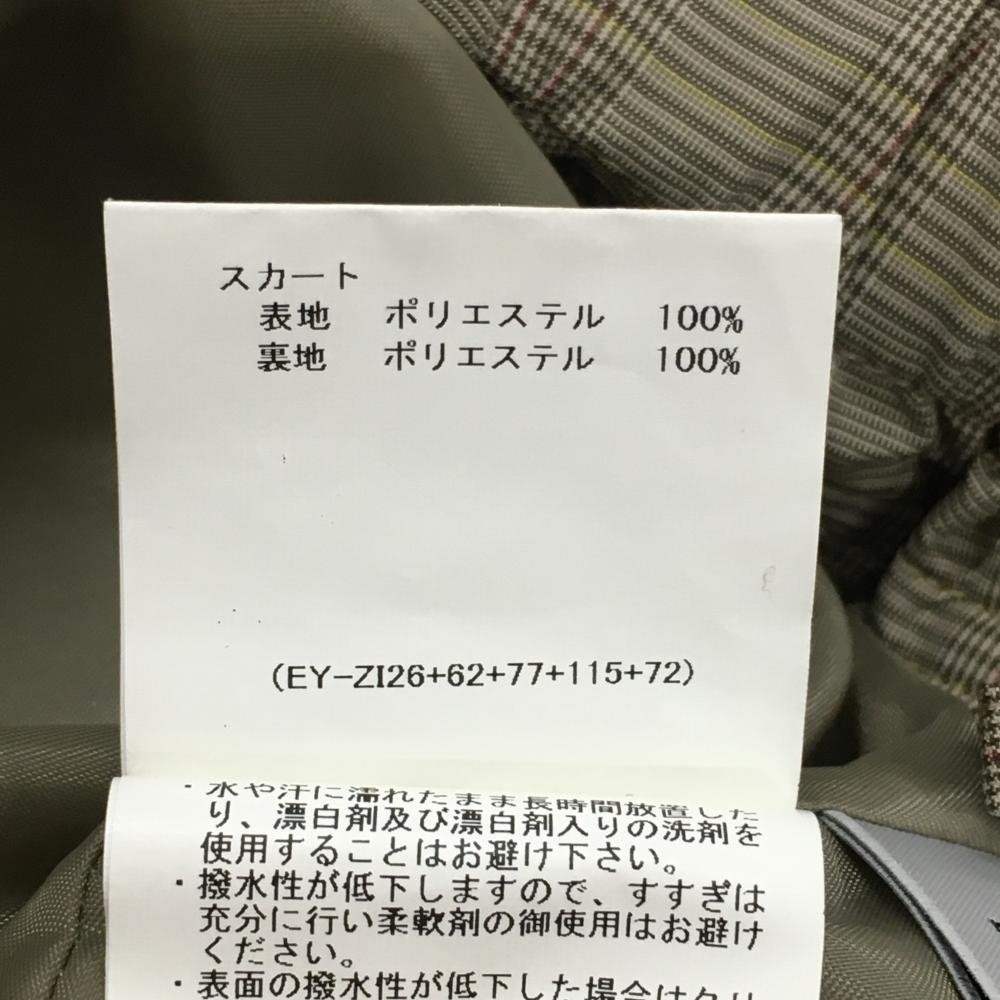 スカート
表地 ポリエステル 100%
裏地 ポリエステル 100%
(EY-ZI26+62+77+115+72)
・水や汗に濡れたまま長時間放置した
り、漂白剤及び漂白剤入りの洗剤を
使用することはお避け下さい。
・撥水性が低下しますので、すすぎは
充分に行い柔軟剤の御使用はお避け
ください。
・表面の撥水性が低下した場合は